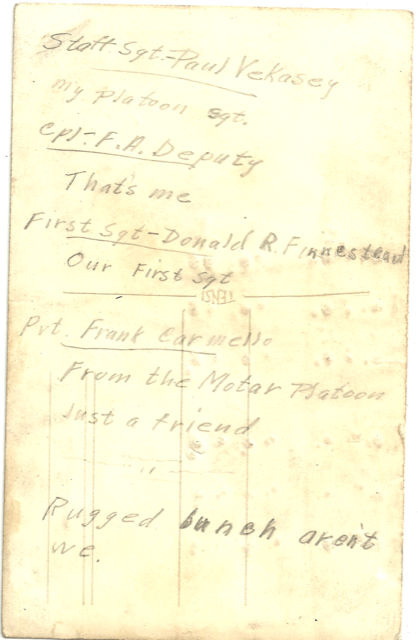 Staff Sgt.-Paul Vekasey
my platoon sgt.
cpl-F.A. Deputy
Thats me
First Sgt-Donald R. Finnestead
Our First Sgt
Pvt. Frank Carmello
From the Motar Platoon
Just a friend
Rugged bunch aren't
we.